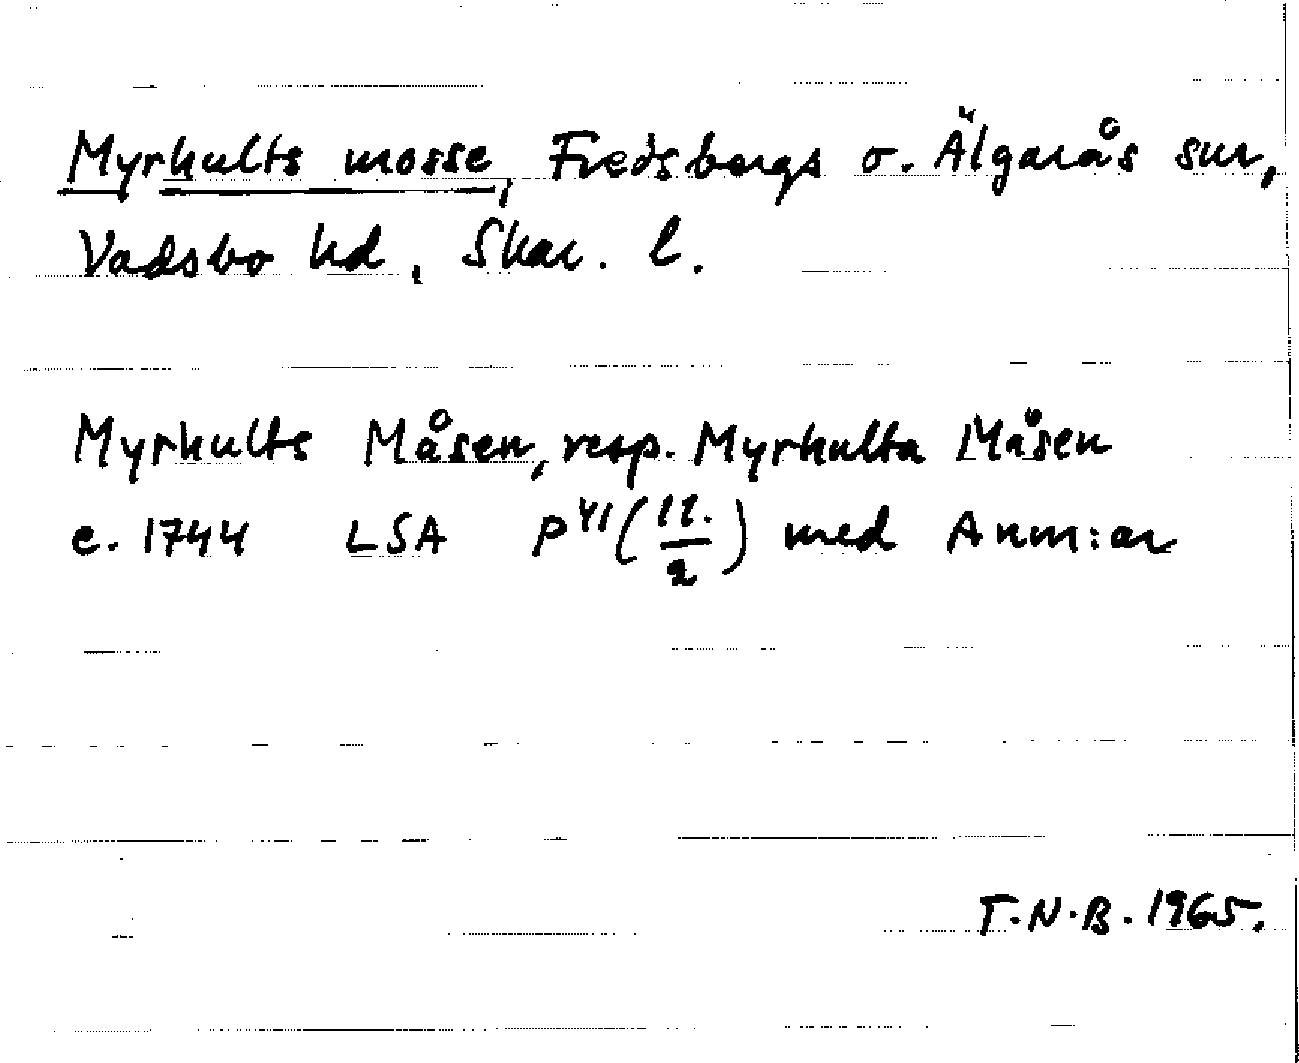 Myrhults mosse, Fredsbergs o. Älgarås snr,
Vadsbo hd, Skar. l.
Myrhults Måsen, resp. Myrhulta Måsen
c. 1744 LSA P41(11./2) med Anm:ar
T.N.B. 1965.